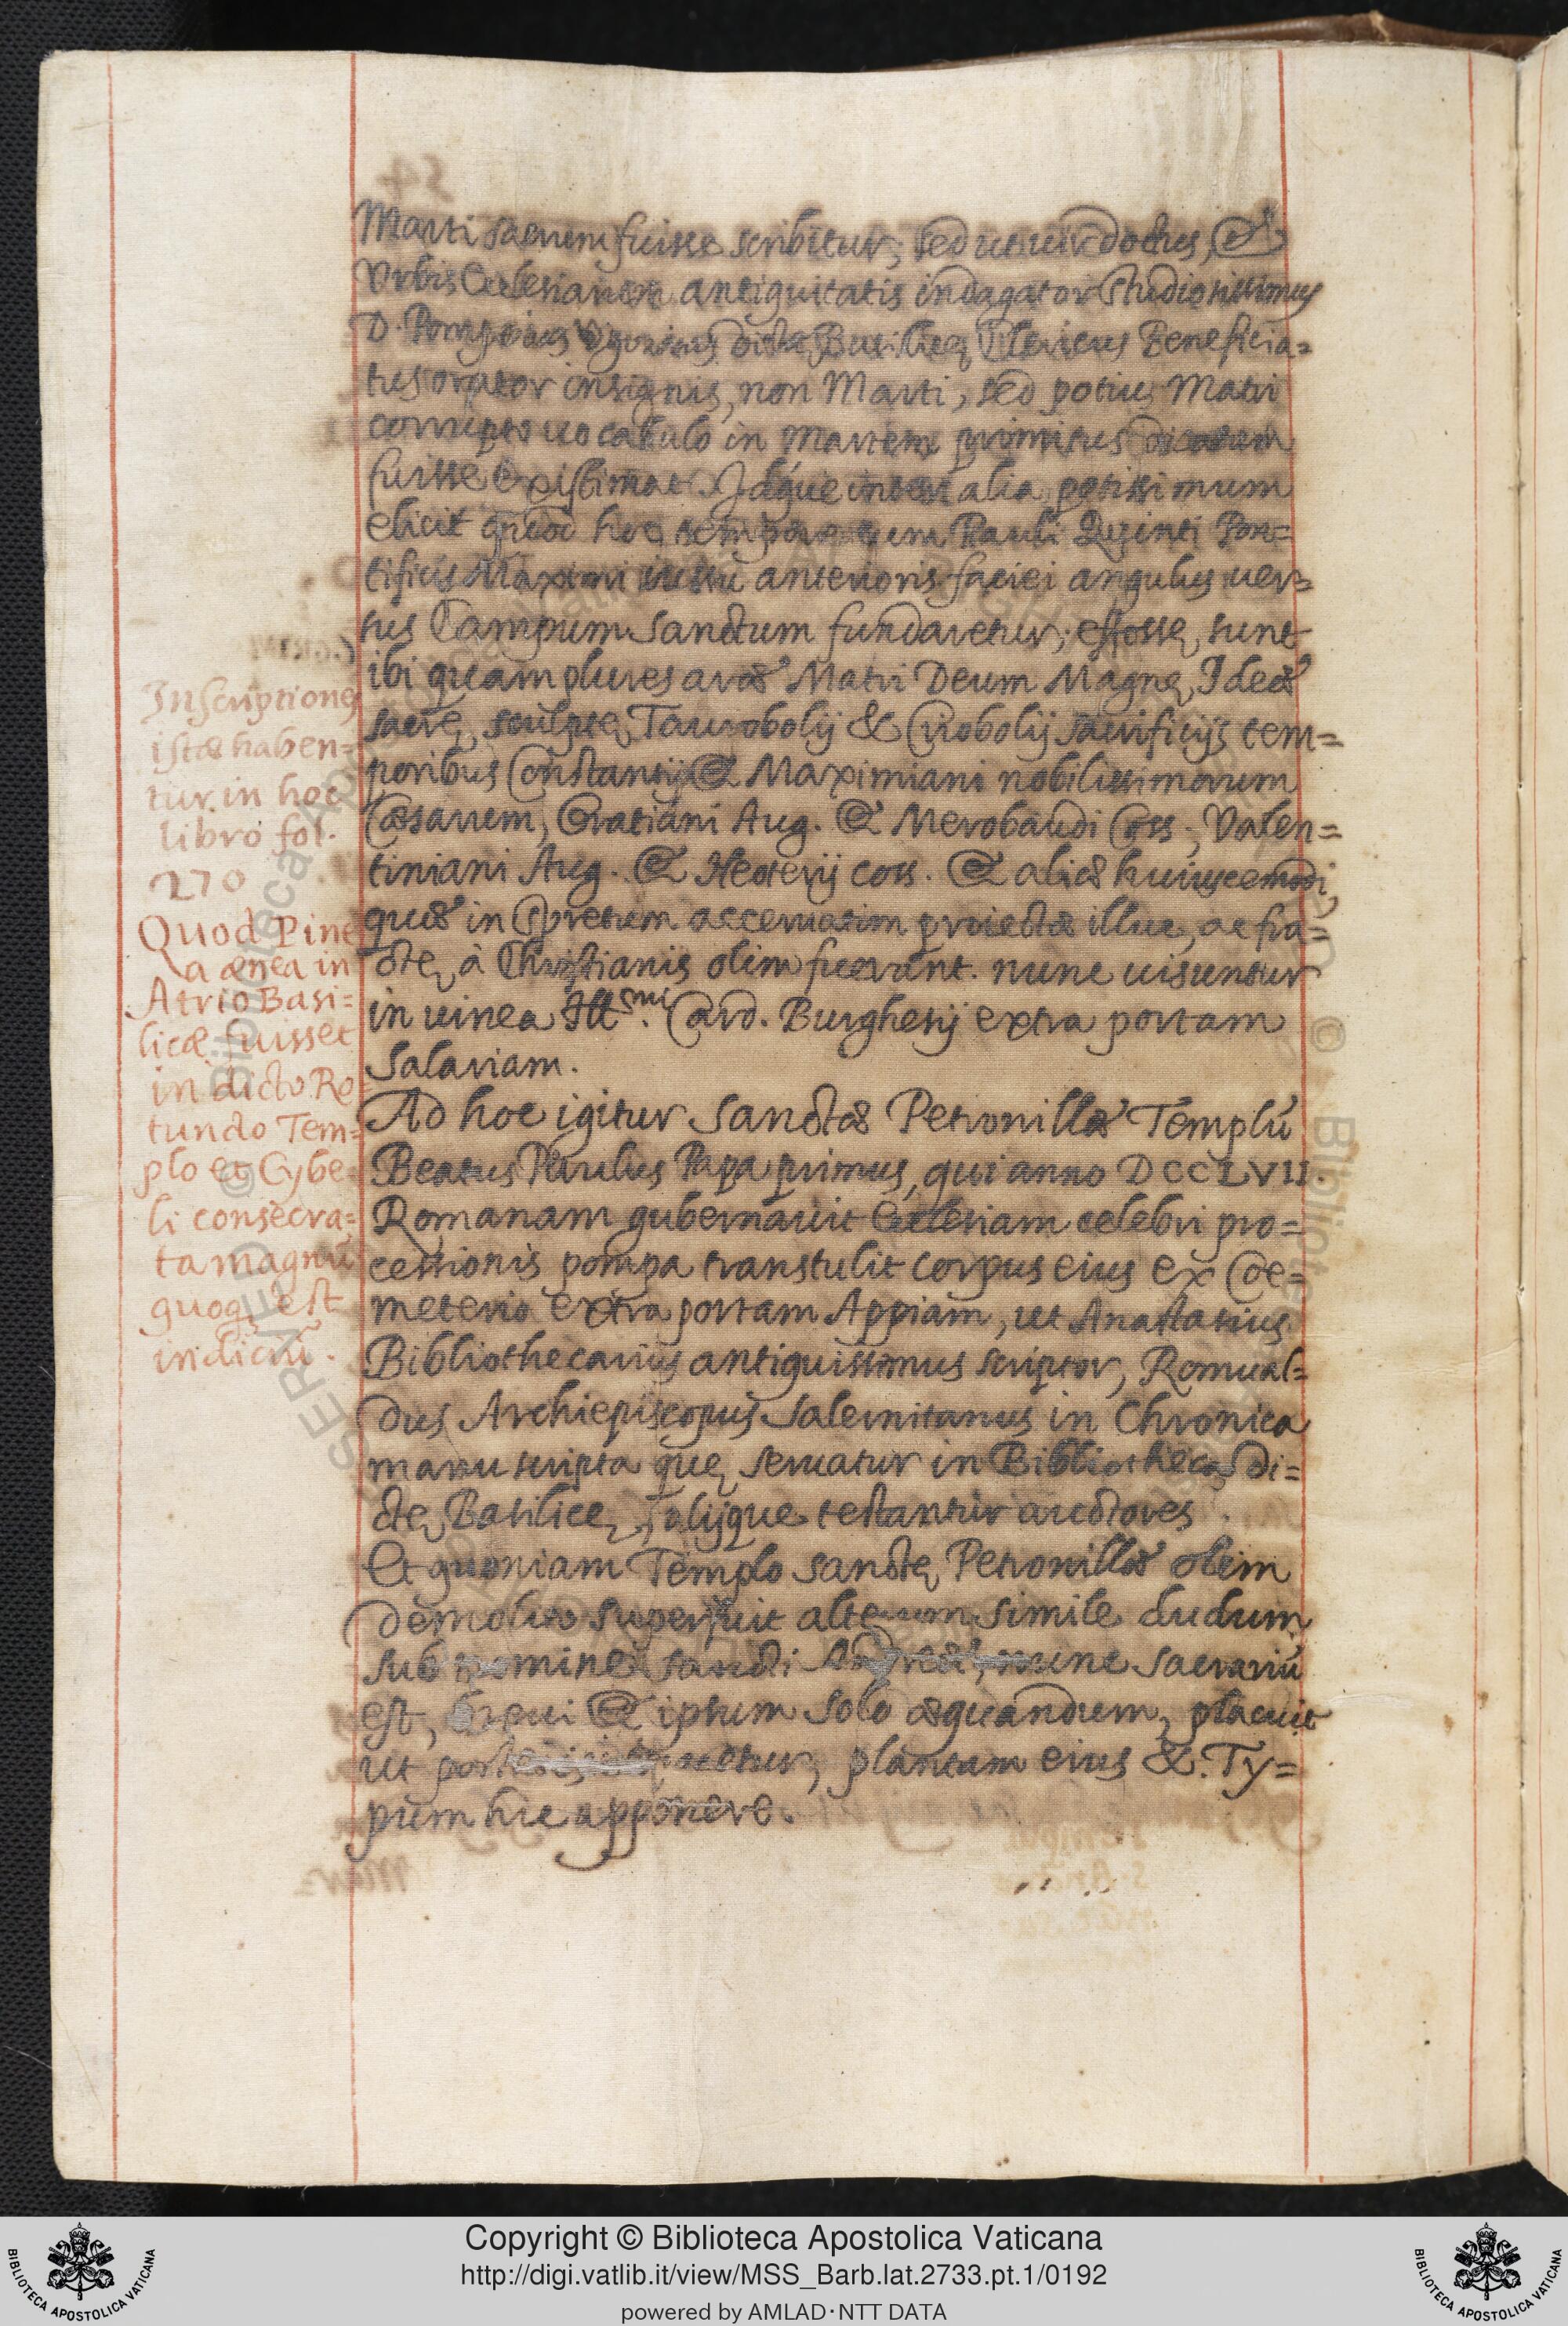 Marti sacrum fuisse scribitur; sed ut uir doctus, &
Vrbis Ecclesiarum antiquitatis indagator studiosissimus
D. Pompeius Vgonius dictę Basilicę Clericus Beneficia=
tus orator insignis, non Marti, sed potius Matri
corrupto uocabulo in Martem primitus dicatum
fuisse existimat. Idque inter alia potissimum
elicit quod hoc tempore cum Pauli Quinti Pon=
tificis Maximi iussu anterioris faciei angulus uer=
sus Campum Sanctum fundaretur; effossę sunt
ibi quamplures aræ Matri Deum Magnę Ideæ
sacrę, sculptę Taurobolij & Criobolij sacrificijs tem=
poribus Constantij & Maximiani nobilissimorum
Cæsarum, Gratiani Aug. & Merobaudi Coss., Valen=
tiniani Aug. & Neoterij coss. & aliæ huiuscemodi,
quæ in spretum aceruatim proiectæ illuc, ac fra=
ctę à Christianis olim fuerunt. nunc uisuntur
in uinea Ill.mi Card. Burghesij extra portam
Salariam.
Ad hoc igitur Sanctæ Petronillæ Templũ
Beatus Paulus Papa primus, qui anno DCCLVII.
Romanam gubernauit Ecclesiam celebri pro=
cessionis pompa transtulit corpus eius ex Coe=
meterio extra portam Appiam, ut Anastasius
Bibliothecarius antiquissimus scriptor, Romual=
dus Archiepiscopus Salernitanus in Chronica
manuscripta quę seruatur in Bibliotheca di=
ctę Basilicę, alijque testantur auctores.
Et quoniam Templo sanctę Petronillæ olim
demolito superfuit alterum simile dudum
sub nomine sancti Andreæ, nunc sacrariũ
est, breui & ipsum solo æquandum, placuit
ut pactur, plantam eius &. Ty=
pum hic apponere.
Inscriptiones
istæ haben=
tur in hoc
libro fol.
270
Quod Pine
a ænea in
Atrio Basi=
licæ uisset
in dicto Ro=
tundo Tem=
plo et Cybe=
li consecra=
ta magnũ
quoq; est
indiciũ.
Copyright © Biblioteca Apostolica Vaticana
http://digi.vatlib.it/view/MSS_Barb.lat.2733.pt.1/0192
powered by AMLAD·NTT DATA
BIBLIOTECA APOSTOLICA VATICANA
BIBLIOTECA APOSTOLICA VATICANA